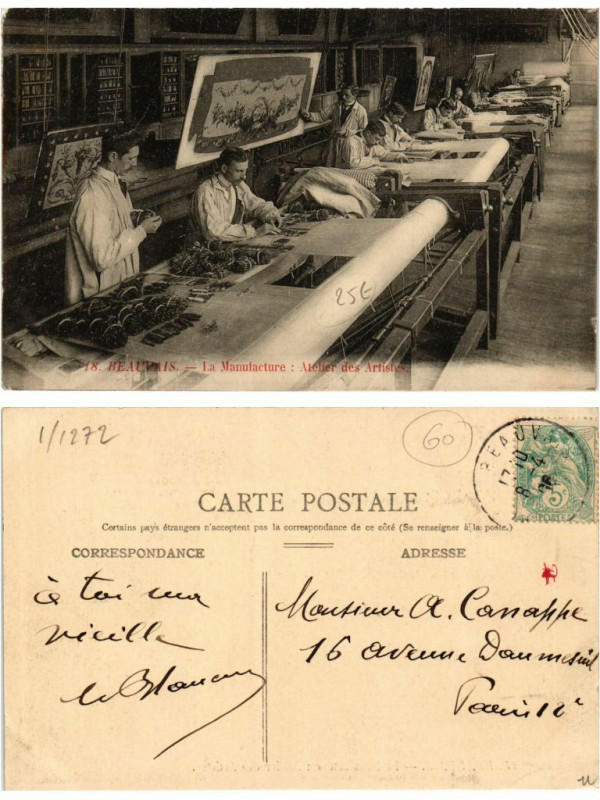 25€
18. BEAUVAIS. — La Manufacture : Atelier des Artistes.
1/1272
60
BEAUV
CARTE POSTALE
Certains pays étrangers n'acceptent pas la correspondance de ce côté (Se renseigner à la poste.)
CORRESPONDANCE
ADRESSE
à toi ma
vieille
Monsieur A. Canappe
16 avenue Daumesnil
Paris 12e
5
POSTES